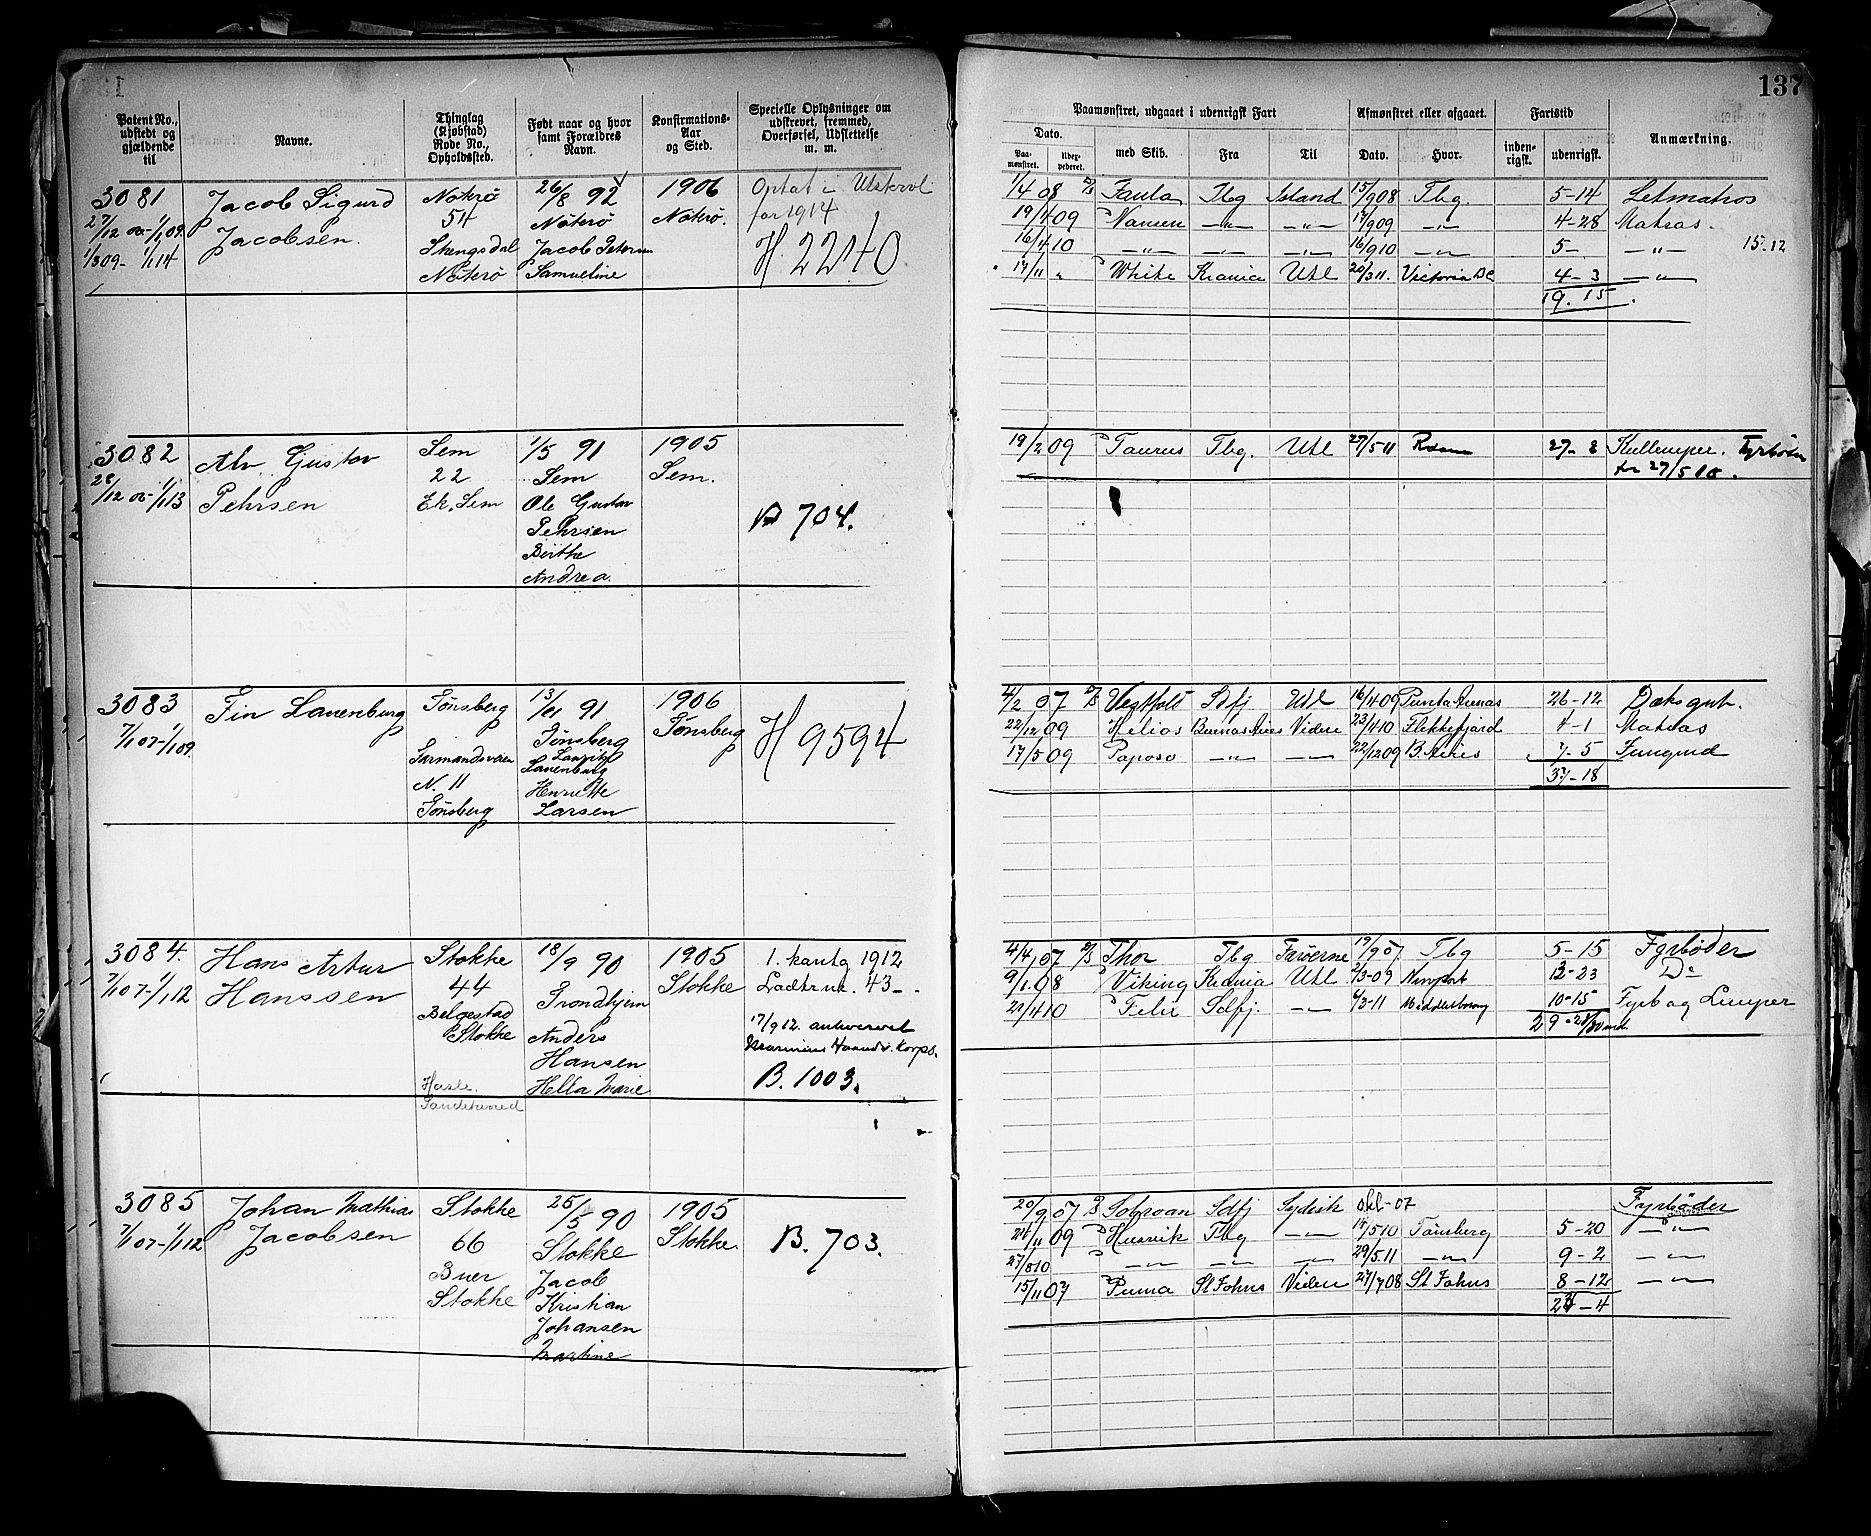 137
Patent No., udstedt og gjældende til
Navne.
Thinglag (Kjøbstad) Rode No., Opholdssted.
Født naar og hvor samt Forældres Navn.
Konfirmations-Aar og Sted.
Specielle Oplysninger om udskrevet, fremmed, Overførsel, Udslettelse m. m.
Paamønstret, udgaaet i udenrigsk Fart
Afmønstret eller afgaaet.
Fartstid
Anmærkning.
Dato.
Paamønstret.
med Skib.
Fra
Til
Dato.
Hvor.
indenrigsk.
udenrigsk.
3081
27/12 06-1/1 09.
1/3 09- 1/1 14
Jacob Sigurd
Jacobsen.
Nøtterø
54
Nøtterø
26/8 92
Nøtterø
Jacob
Samueline
1906
Nøtterø.
for 1914
H. 2240.
1/4 08 Tbg Island 15/9 08 Tbg. 5-14 Letmatros
19/4 09 Nansen -"- -"- 17/9 09 -"- 4-28 Matros.
16/4 10 -"- -"- -"- 16/9 10 -"- 5- -"- 15-12
17/11 " White Krania Utl 20/3 11. Victoria BC 4-3 -"-
19. 15.
3082
Gustav
Pehrsen
Sem
22
Ek. Sem
1/5 91
Sem
Ole Gustav
Pehrsen
Birthe
Andrea.
1905
Sem.
B 704.
19/2 09 Taurus Tbg. Utl 27/5 11 27-8 Kullemper. Fyrbøder
fra 27/5 10.
3083
7/1 07-1/1 09.
Fin Lauenburg
Tønsberg
N. 11
Tønsberg
91
Tønsberg
Lauritz
Lauenburg
Henriette
Larsen
1906
Tønsberg
H 9594
4/2 07 Vestfold Sdfj Utl 16/4 09 Punta Arenas 26-12 Dæksgut.
22/12 09 Helios Buenos Aires Videre 23/4 10 Flekkefjord 4-1 Matros
17/5 09 Paposo -"- 22/12 09 B. Aires 7-5 Jungmd
37-18
3084.
7/1 07-1/1 12
Hans Artur
Hanssen
Stokke
44
Stokke
18/9 90
Trondhjem
Anders
Hansen
Hella Marie
1905
Stokke
1912
43-.
17/9 12.
B. 1003.
4/4 07 Thor Tbg Færøerne 19/9 07 Tbg 5-15 Fyrbøder
9/1 08 Viking Krania Utl 2/3-09 Newport 12-23 Do
21/4 10 Felix Sdfj. 6/3-11 Middlesborough 10-15 Fyrb og Lemper
3085
7/1 07-1/1 12
Johan Mathias
Jacobsen
Stokke
66
Buer
Stokke
25/5 90
Stokke
Jacob
Kristian
Johansen
Martine
1905
Stokke.
B. 703.
20/9 07 Sobraon Sdfj Sydisk okt-07 Fyrbøder
09 Husvik Tbg 14/5 10 Tønsberg 5-20 -"-
27/8 10 -"- -"- -"- 29/5 11 -"- 9-2 -"-
15/11 07 Puma St Johns Videre 27/7 08 St Johns 8-12 -"-